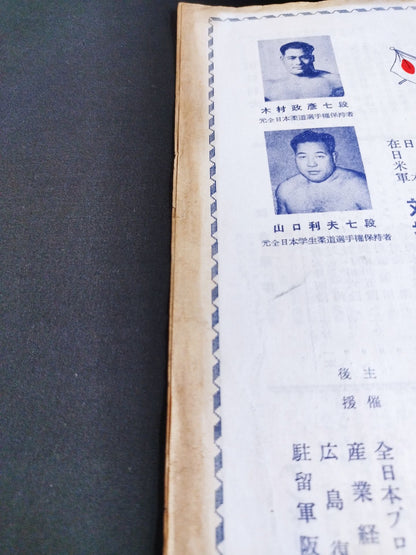 木村政彦七段
元全日本柔道選手権保持者
山口利夫七段
元全日本学生柔道選手権保持者
日
在日米軍
対
主催
後援
全日本プロ
産業経
広島
駐留軍阪